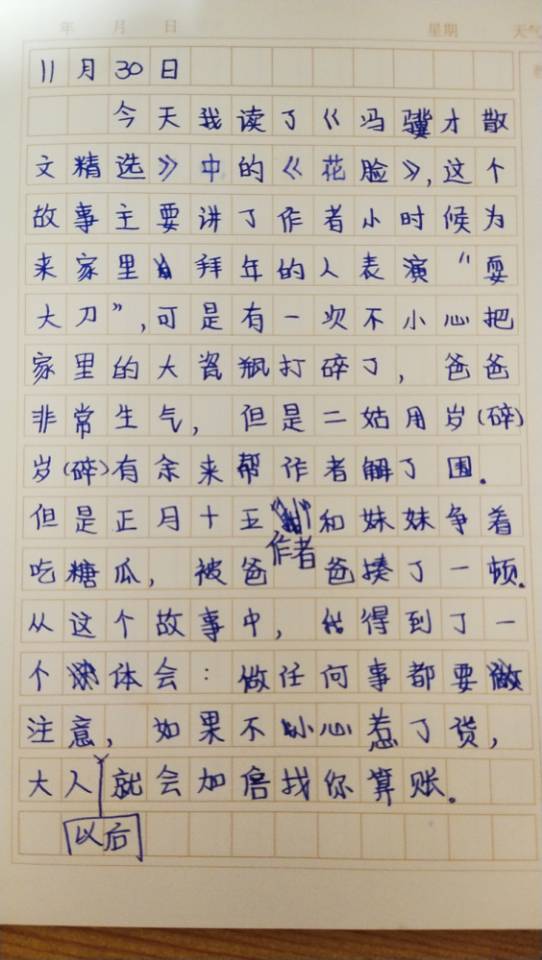 年 月 日 星期 天气
11月30日
今天我读了《冯骥才散
文精选》中的《花脸》,这个
故事主要讲了作者小时候为
来家里拜年的人表演"耍
大刀",可是有一次不小心把
家里的大瓷瓶打碎了,爸爸
非常生气,但是二姑用岁(碎)
岁(碎)有余来帮作者解了围。
但是正月十五作者和妹妹争着
吃糖瓜,被爸爸揍了一顿。
从这个故事中,我得到了一
个体会:做任何事都要
注意,如果不小心惹了货,
大人以后就会加倍找你算账。